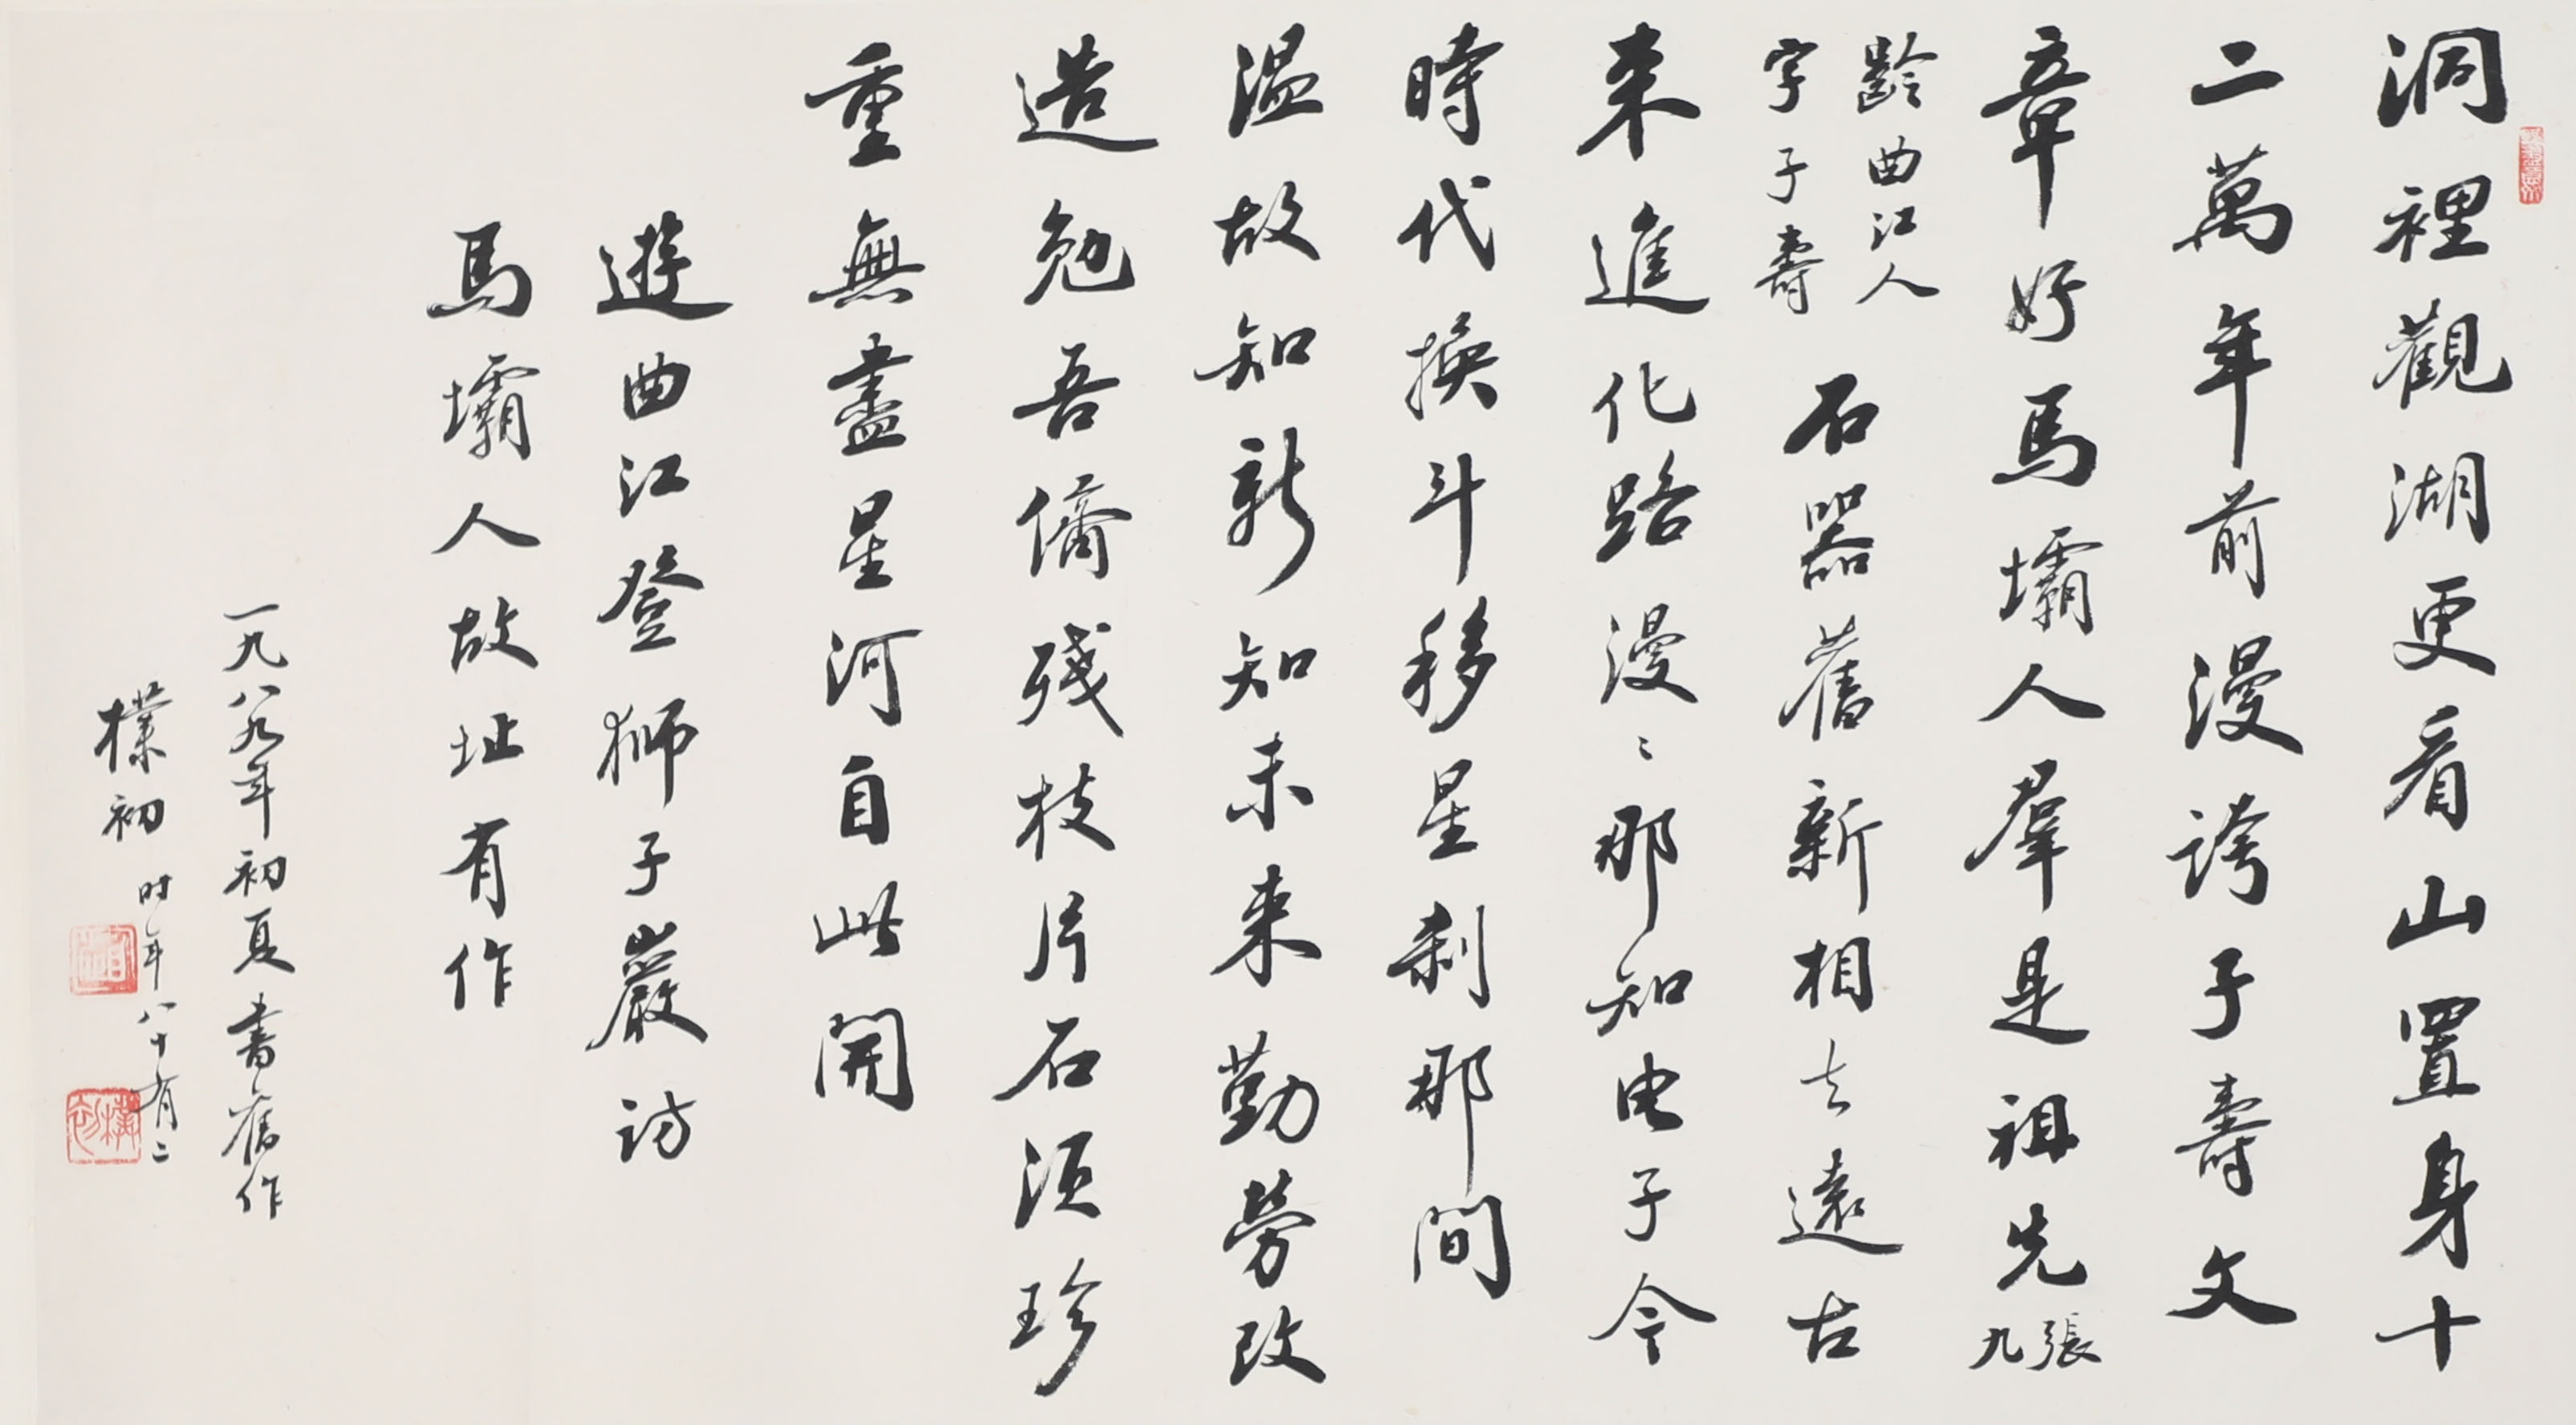 洞裡觀湖更看山置身十
二萬年前漫誇子壽文
章好馬壩人羣是祖先張九
齡曲江人
字子壽
石器舊新相去遠古
來進化路漫〻那知电子今
時代換斗移星刹那間
溫故知新知未来勤勞改
造勉吾儕殘枝片石須珍
重無盡星河自此開
遊曲江登狮子巖訪
馬壩人故址有作
一九八九年初夏書舊作
樸初时年八十有二
樸初